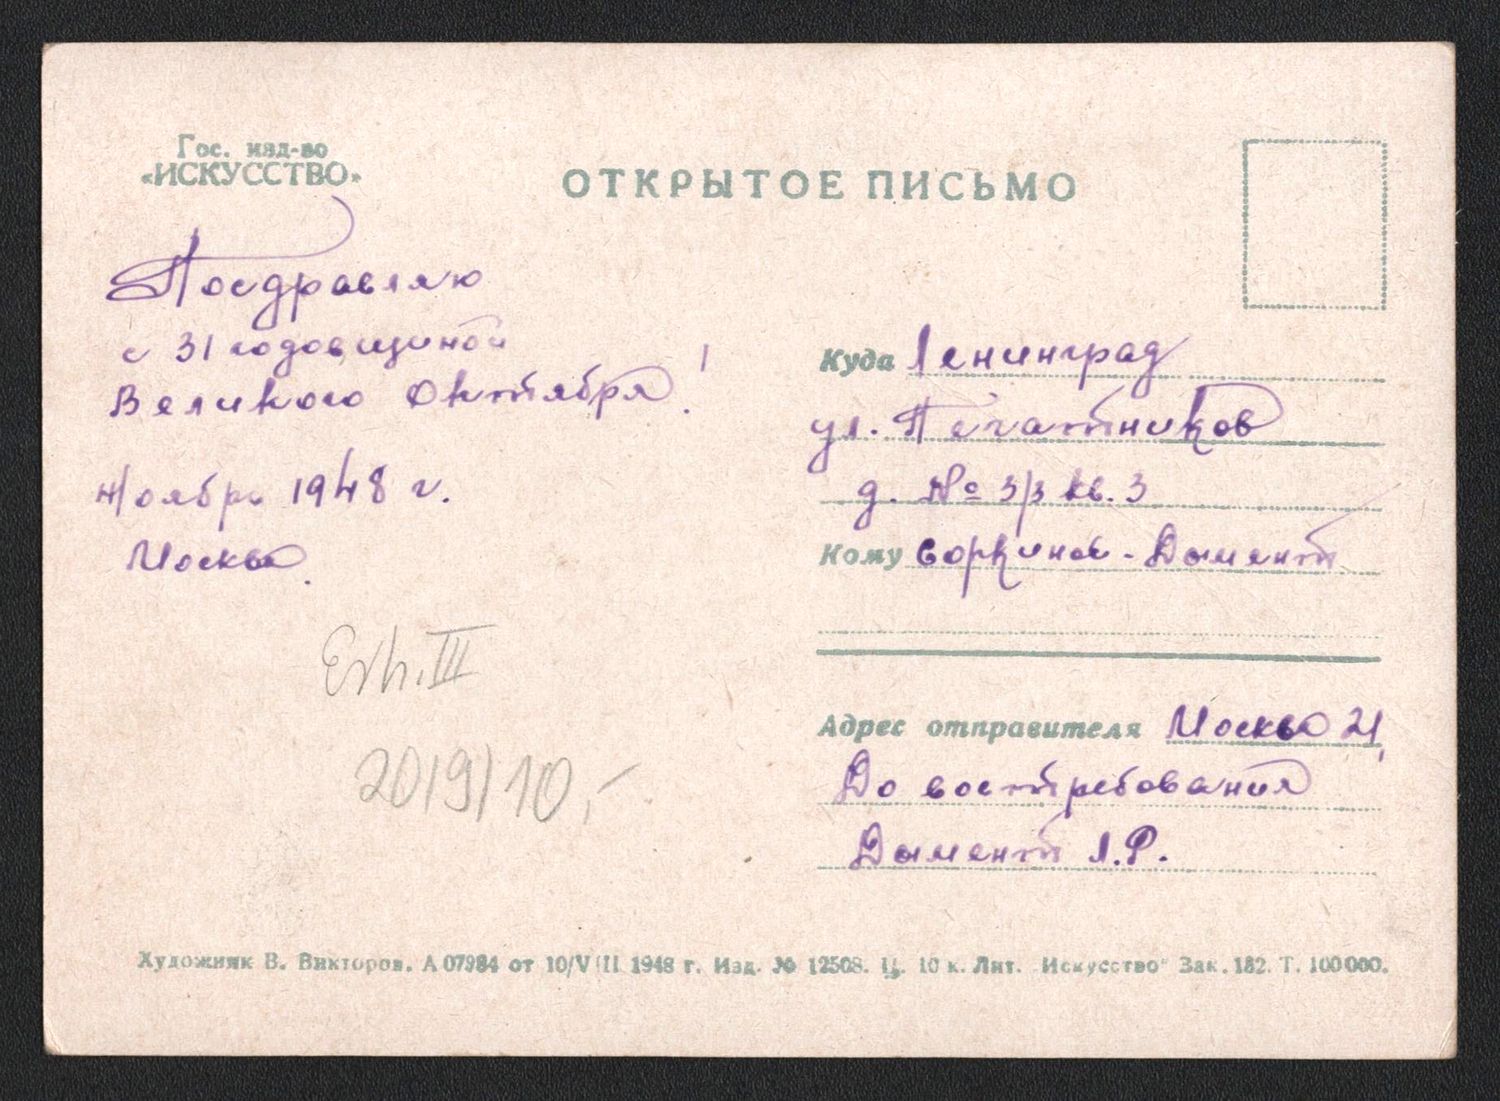 Гос. изд-во
«ИСКУССТВО»
ОТКРЫТОЕ ПИСЬМО
Поздравляю
с 31 годовщиной
Великого Октября!
Ноябрь 1948 г.
Москва.
Erh. III
2019/10,-
Куда Ленинград
ул. Печатников
д. № 3/3 кв. 3
Кому Соркиной-Дымент
Адрес отправителя Москва 21,
До востребования
Дымент Л.Р.
Художник В. Викторов. А 07984 от 10/VIII 1948 г. Изд. № 12508. Ц. 10 к. Лит. „Искусство" Зак. 182. Т. 100 000.